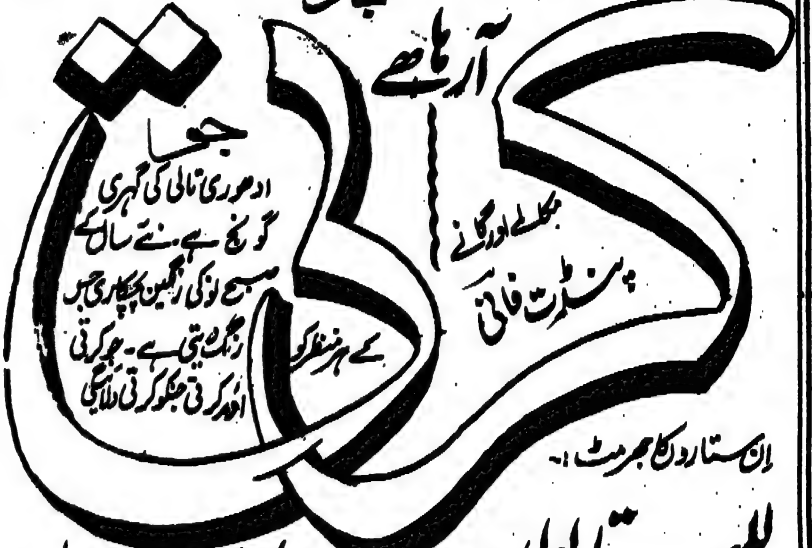 آ رہا ہے
کرتی
جو
ادھوری تالی کی گہری
گونج ہے۔ نئے سال کے
صبح نو کی رنگین پچکاری جس
کے ہر منظر کو رنگ دیتی ہے۔ جو کرتی
اور کرتی جنکو کرتی دلائیگی
مکالمے اور گانے
پنڈت فانی
اِن ستاروں کا جھرمٹ :۔